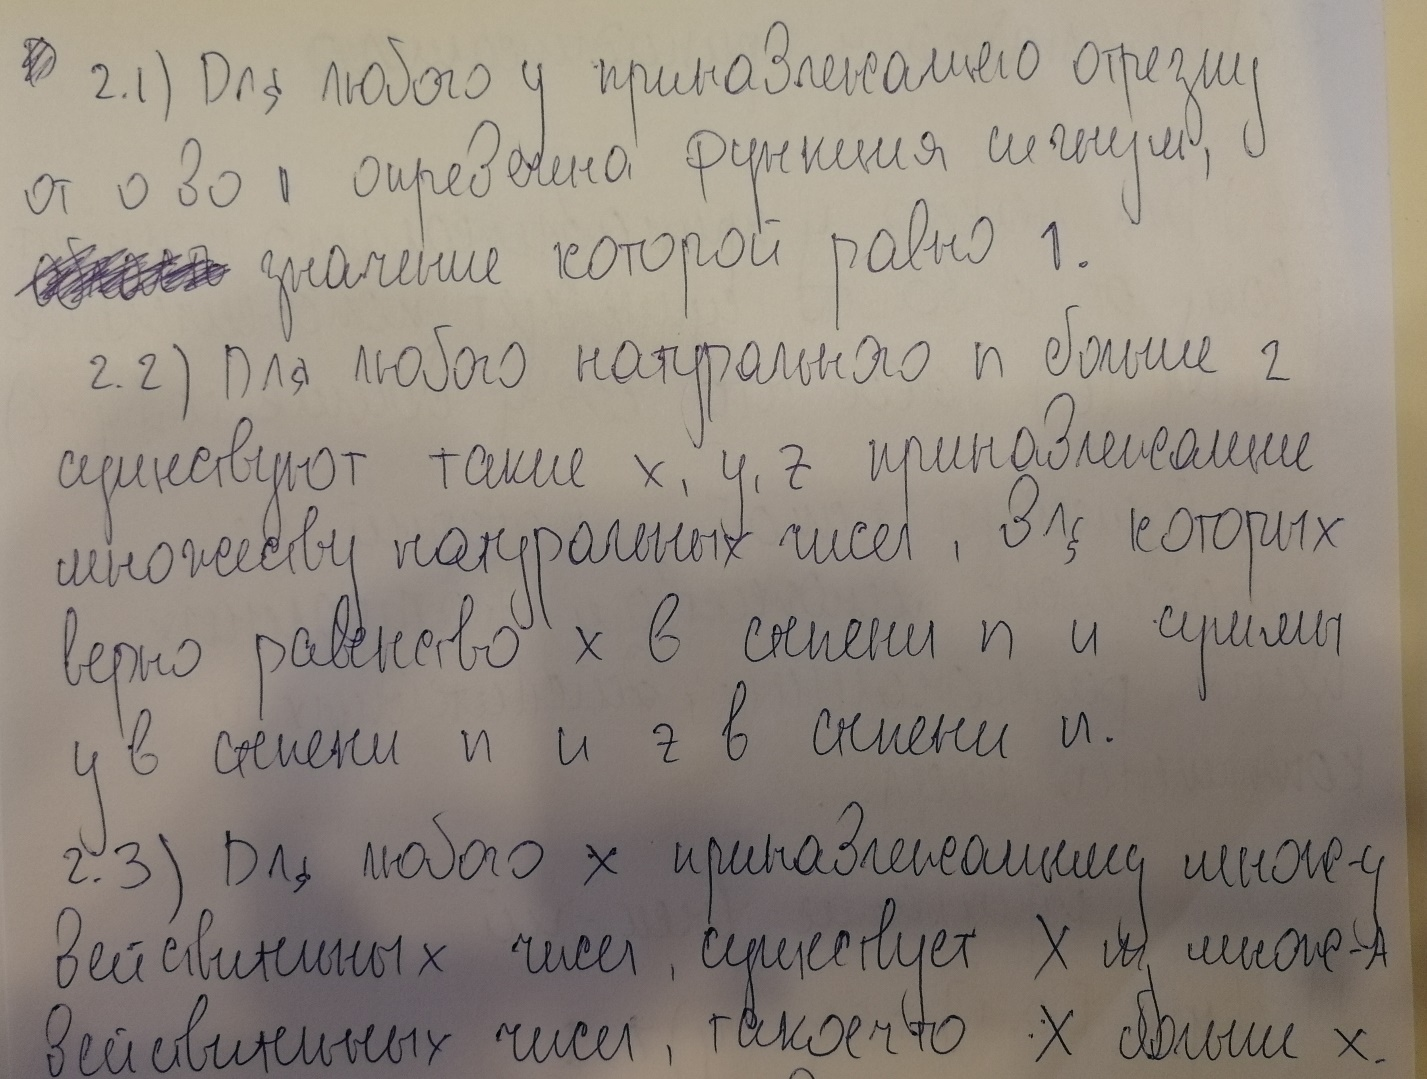 2.1) Для любого y принадлежащего отрезку
от 0 до 1 определена функция сигнум,
значение которой равно 1.
2.2) Для любого натурального n больше 2
существуют такие x, y, z принадлежащие
множеству натуральных чисел, для которых
верно равенство x в степени n и суммы
y в степени n и z в степени n.
2.3) Для любого x принадлежащему множе-у
действительных чисел, существует X из множе-а
действительных чисел, такое что X больше x.